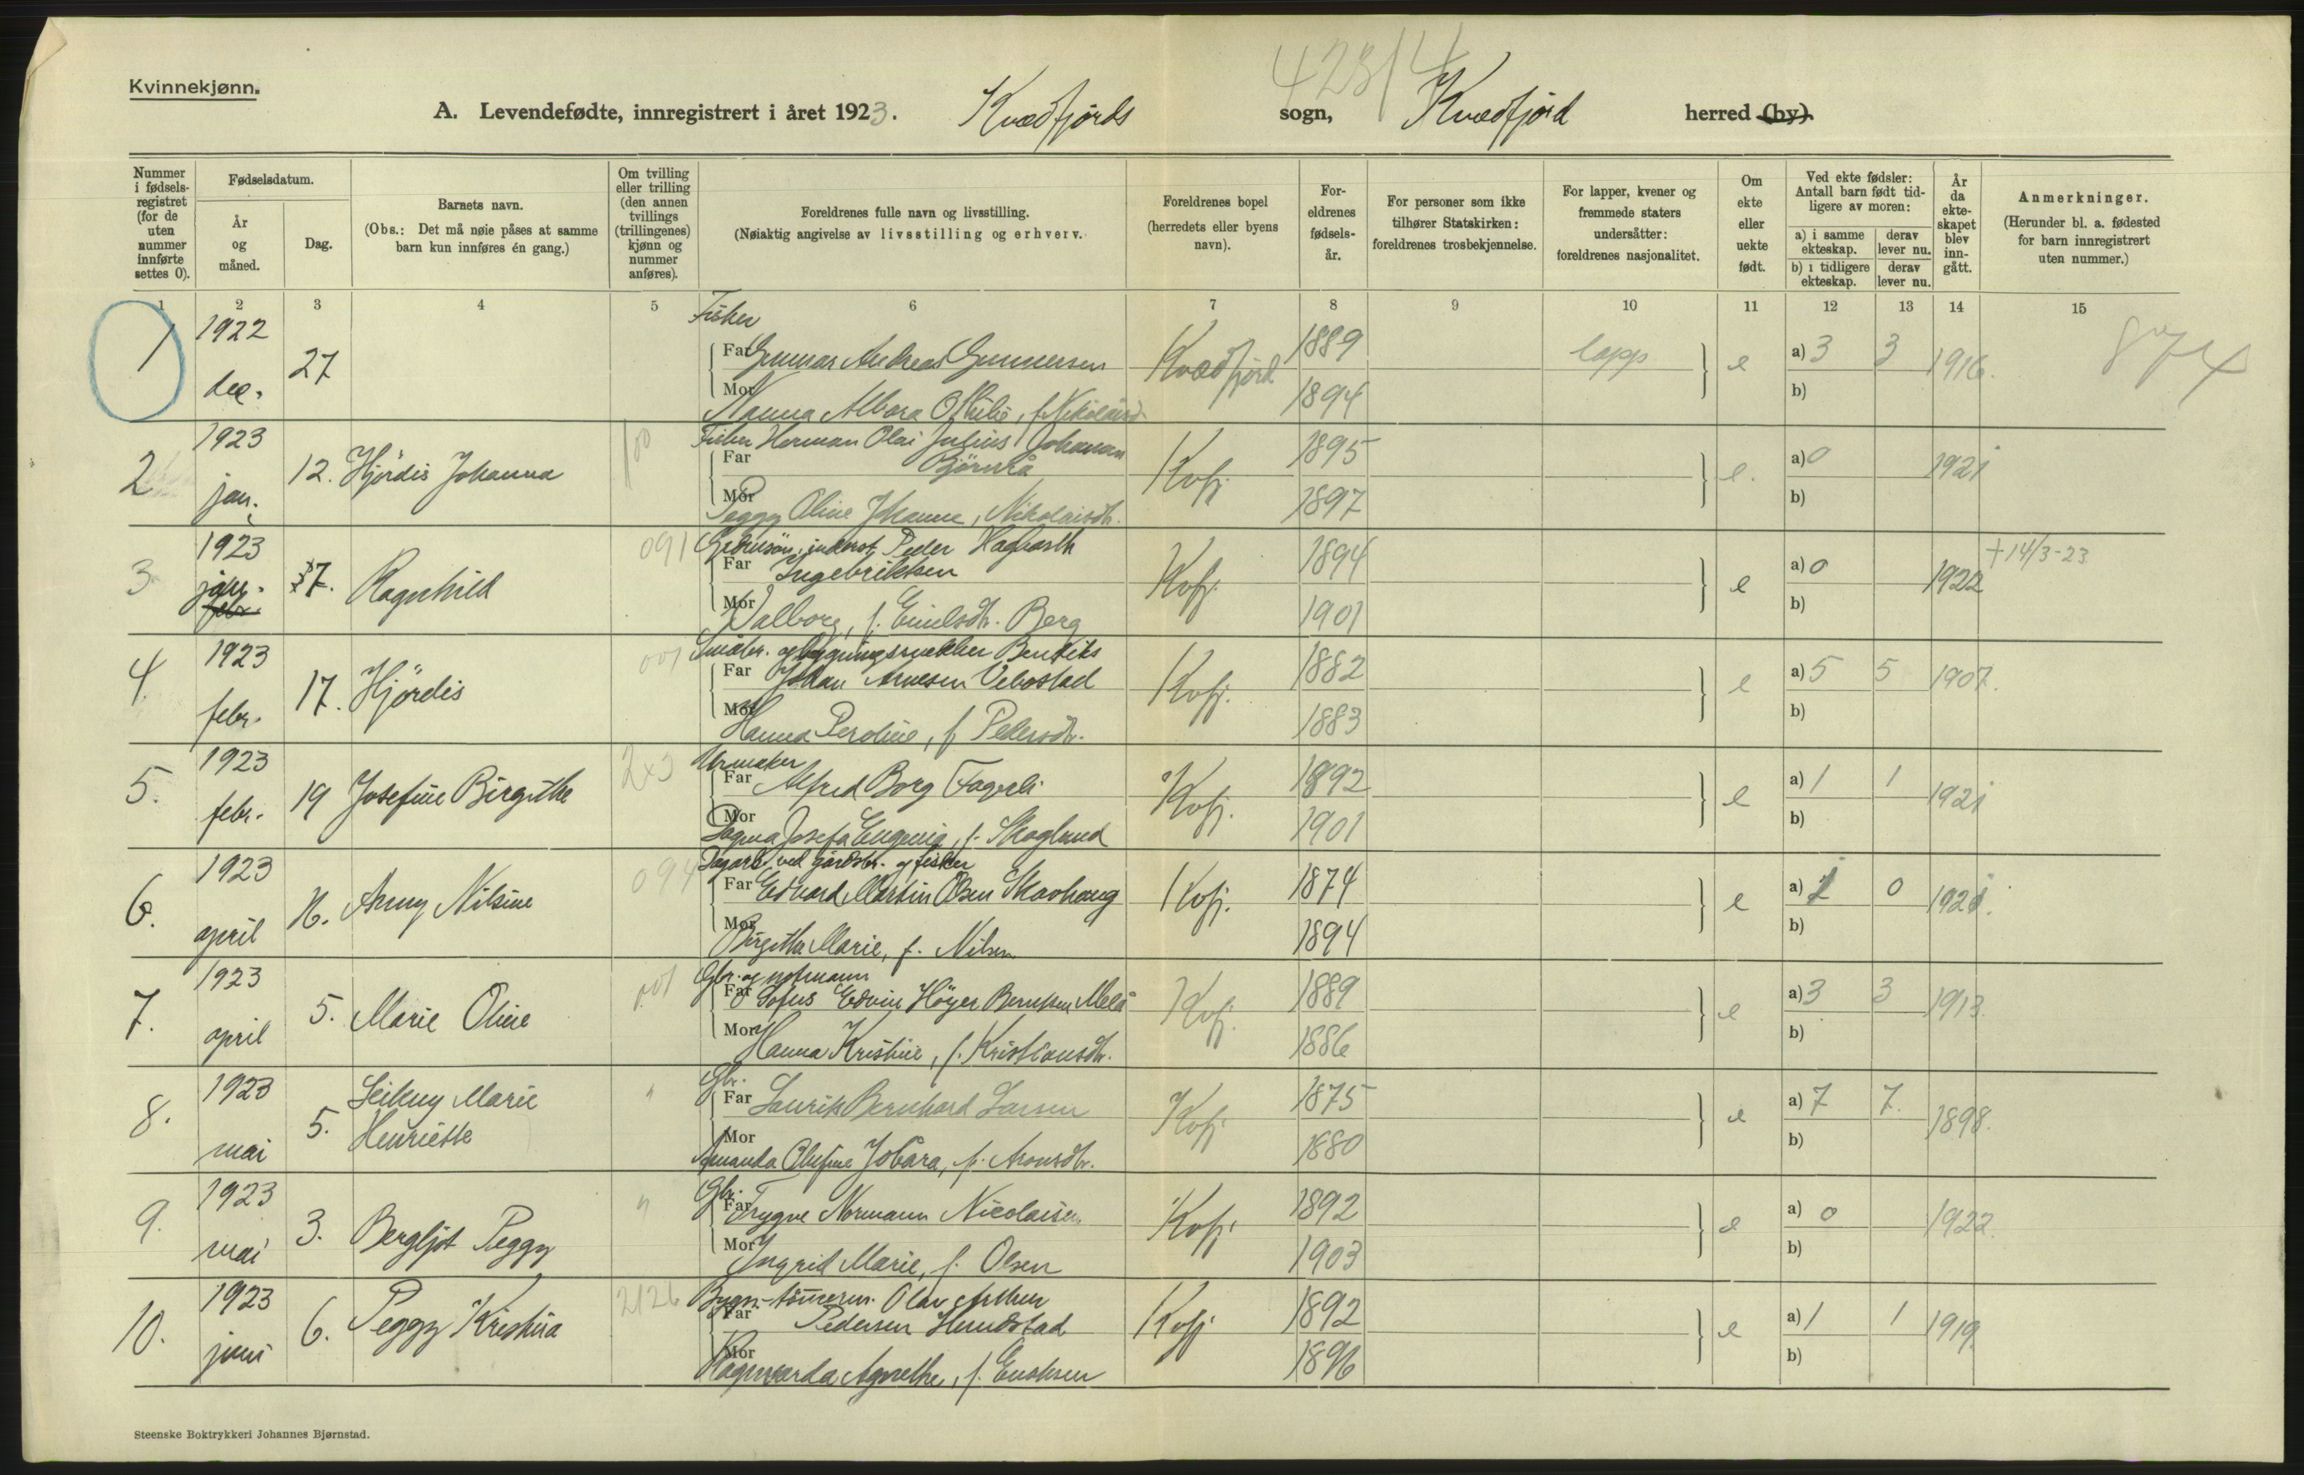 Kvinnekjønn.
A. Levendefødte, innregistrert i året 1923. Kvædfjords sogn, Kvædfjord herred (by).
42314
Nummer i fødselsregistret (for de uten nummer innførte settes 0).
Fødselsdatum.
År og måned.
Dag.
Barnets navn.
(Obs.: Det må nøie påses at samme barn kun innføres én gang.)
Om tvilling eller trilling (den annen tvillings (trillingenes) kjønn og nummer anføres).
Foreldrenes fulle navn og livsstilling.
(Nøiaktig angivelse av livsstilling og erhverv.
Foreldrenes bopel (herredets eller byens navn).
Foreldrenes fødselsår.
For personer som ikke tilhører Statskirken: foreldrenes trosbekjennelse.
For lapper, kvener og fremmede staters undersåtter: foreldrenes nasjonalitet.
Om ekte eller uekte født.
Ved ekte fødsler: Antall barn født tidligere av moren:
a) i samme ekteskap.
derav lever nu.
b) i tidligere ekteskap.
derav lever nu.
År da ekteskapet blev inngått.
Anmerkninger.
(Herunder bl. a. fødested for barn innregistrert uten nummer.)
1 2 3 4 5 6 7 8 9 10 11 12 13 14 15
1 1922 dec. 27
Fisker
Far Gunnar Andreas Gunnersen Kvædfjord 1889 lapp e a) 3 3 1916.
Mor Nanna Albora Othilie, f. Nikolaisd. 1894 b)
2 1923 jan. 12. Hjördis Johanna 100
Fisker Herman Olai Julius Johansen
Far Björnrå Kvfj. 1895 e. a) 0 1921
Mor Peggy Oline Johanne, Nikolaisdtr. 1897 b)
3 1923 jan. febr. 7. Ragnhild 091
Gårdbrsön, inderst, Peder Hagbarth
Far Ingebriktsen Kvfj. 1894 e a) 0 1922 + 14/3-23
Mor Valborg, f. Emilsdtr. Berg 1901 b)
4. 1923 febr. 17. Hjördis 001
Småbr. og bygningssnekker Bendiks
Far Johan Arnesen Vebostad Kvfj. 1882 e a) 5 5 1907.
Mor Hanna Peroline, f. Pedersdtr. 1883 b)
5. 1923 febr. 19 Josefine Birgithe 2x3
Urmaker
Far Alfred Borg Fagerli Kvfj. 1892 e a) 1 1 1921
Mor Dagma Josefa Eugenia, f. Skogland 1901 b)
6. 1923 april Anny Nilsine 094
Dagarb. ved gårdsbr. og fisker
Far Edvard Martin Olsen Skavhaug Kvfj. 1874 e a) 1 0 1921.
Mor Birgitha Marie, f. Nilsen 1894 b)
7. 1923 april 5. Marie Oline 001
Gbr. og notmann
Far Sofus Edvin Höyer Berntsen Melå Kvfj. 1889 e a) 3 3 1913.
Mor Hanna Kristine, f. Kristiansdtr. 1886 b)
8. 1923 mai 5. Leikny Marie Henriette "
Gbr.
Far Laurits Bernhard Larsen Kvfj. 1875 e a) 7 7. 1898.
Mor Amanda Olufine Jobara, f. Aronsdtr. 1880 b)
9. 1923 mai 3. Bergljot Peggy "
Gbr.
Far Trygve Normann Nicolaisen Kvfj. 1892 e a) 0 1922.
Mor Ingrid Marie, f. Olsen 1903 b)
10. 1923 juni 6. Peggy Kristina 2126
Bygn.-tömrerm. Olav Arthur
Far Pedersen Hundstad Kvfj. 1892 e a) 1 1 1919.
Mor Ragnvarda Agnethe, f. Enoksen 1896 b)
Steenske Boktrykkeri Johannes Bjørnstad.